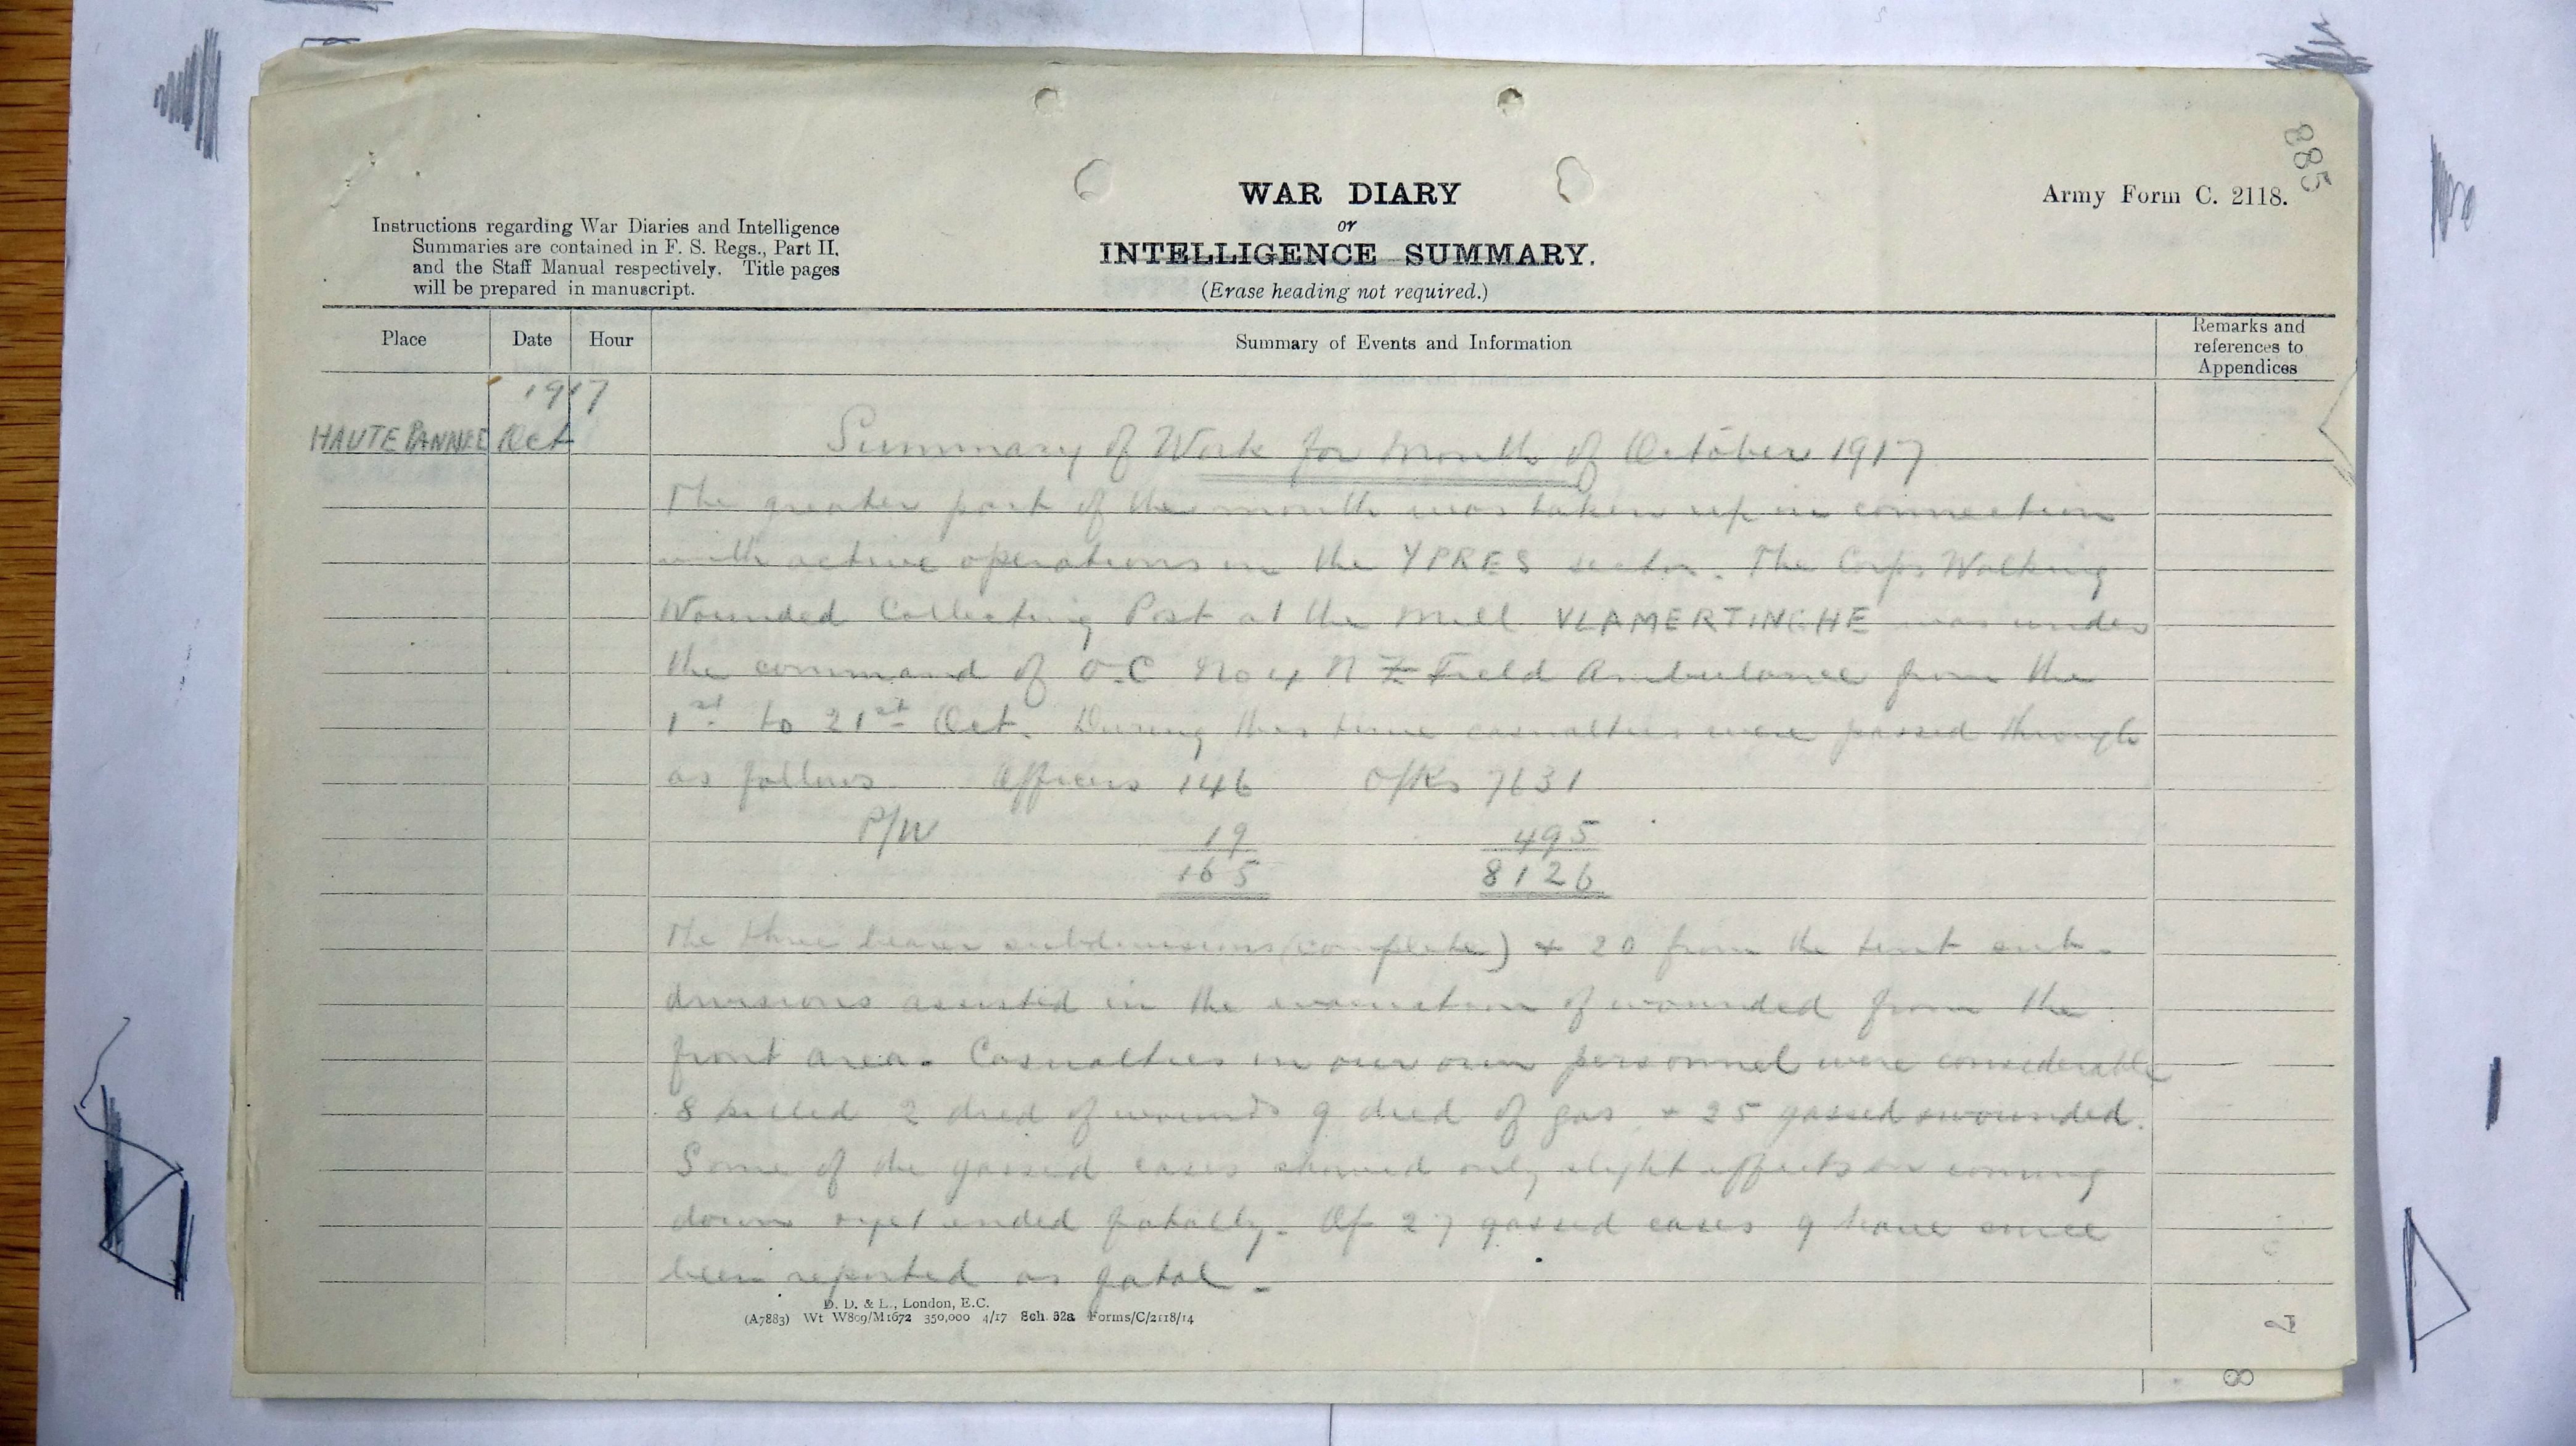 885
WAR DIARY
or
INTELLIGENCE SUMMARY.
(Erase heading not required.)
Army Form C. 2118.
Instructions regarding War Diaries and Intelligence
Summaries are contained in F. S. Regs., Part II,
and the Staff Manual respectively. Title pages
will be prepared in manuscript.
Place Date Hour Summary of Events and Information Remarks and references to Appendices
1917
HAUTE PANNEE Oct Summary of Work for Month of October 1917
The greater part of the month was taken up in connection
with active operations in the YPRES sector. The Corps Walking
Wounded Collecting Post at the Mill VLAMERTINGHE was under
the command of O.C No 4 N Z Field Ambulance from the
1st to 21st Oct. During this time casualties were passed through
as follows Officers 146 O/Rs 7631
P/W 19 495
165 8126
The three bearer subdivisions (complete) + 20 from the tent sub-
divisions assisted in the evacuation of wounded from the
front area. Casualties in our own personnel were considerable
8 killed 2 died of wounds 9 died of gas + 25 gassed + wounded.
Some of the gassed cases showed only slight effects on coming
down + yet ended fatally. Of 27 gassed cases 9 have since
been reported as fatal.
D. D. & L., London, E.C.
(A7883) Wt W809/M1672 350,000 4/17 Sch. 52a Forms/C/2118/14
7
8